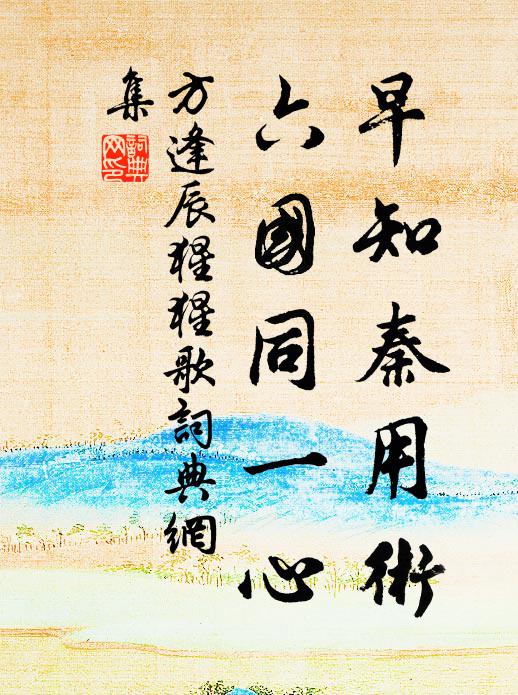 早知秦用術
六國同一心
方逢辰猩猩歌詞典網
集
詞典
网印